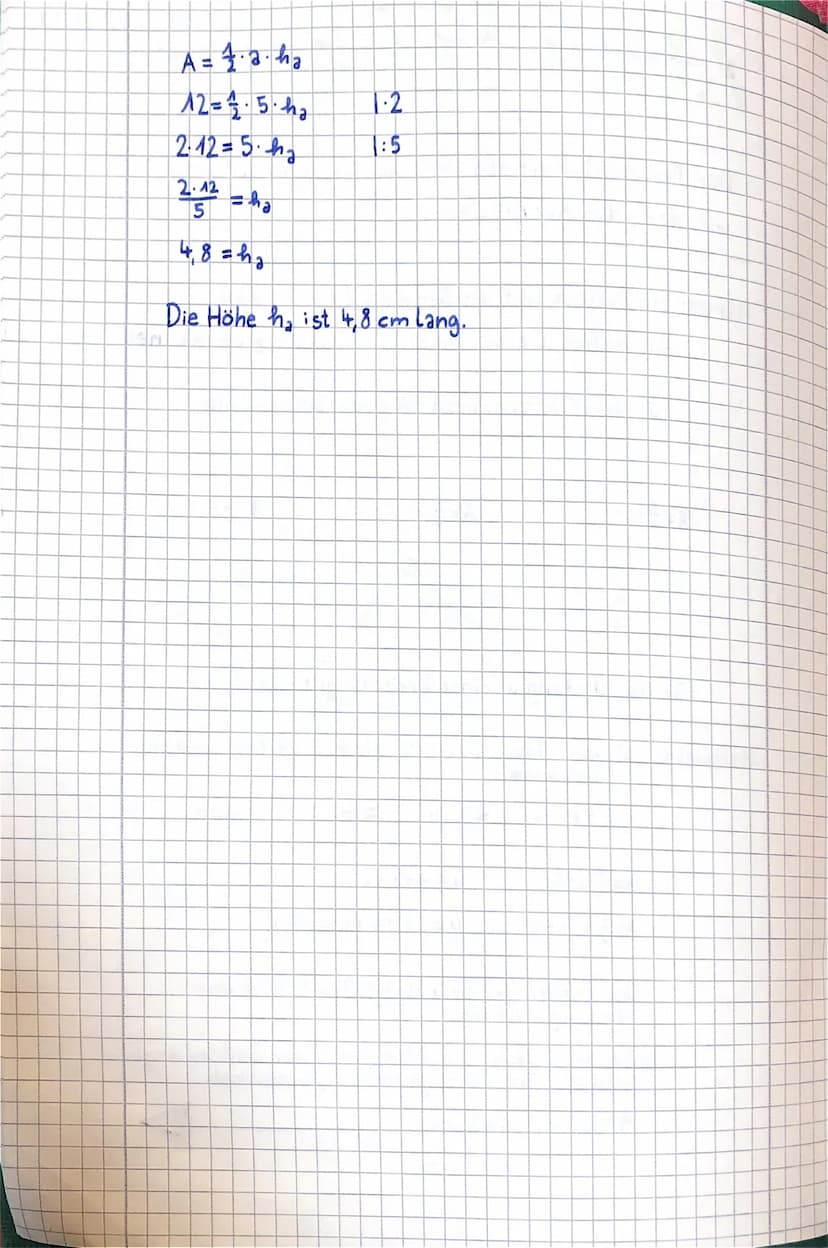 A = 1/2 · a · hₐ
12 = 1/2 · 5 · hₐ |·2
2·12 = 5 · hₐ |:5
2·12/5 = hₐ
4,8 = hₐ
Die Höhe hₐ ist 4,8 cm lang.